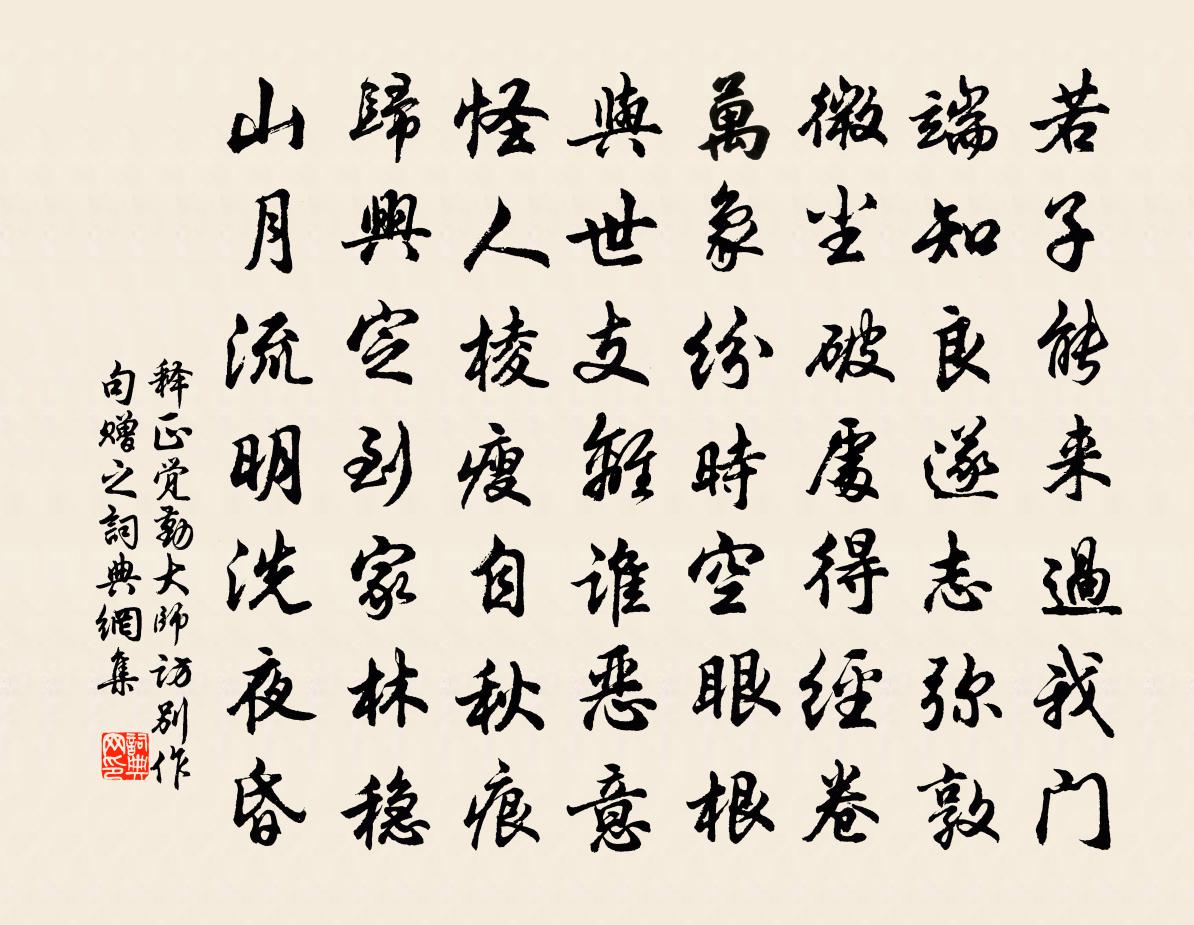 若子能来過我门
端知良遂志弥敦
微尘破處得經卷
萬象纷時空眼根
與世支離谁恶意
怪人棱瘦自秋痕
歸興定到家林稳
山月流明洗夜昏
释正觉勤大师访别作
句赠之詞典網集
詞典网印